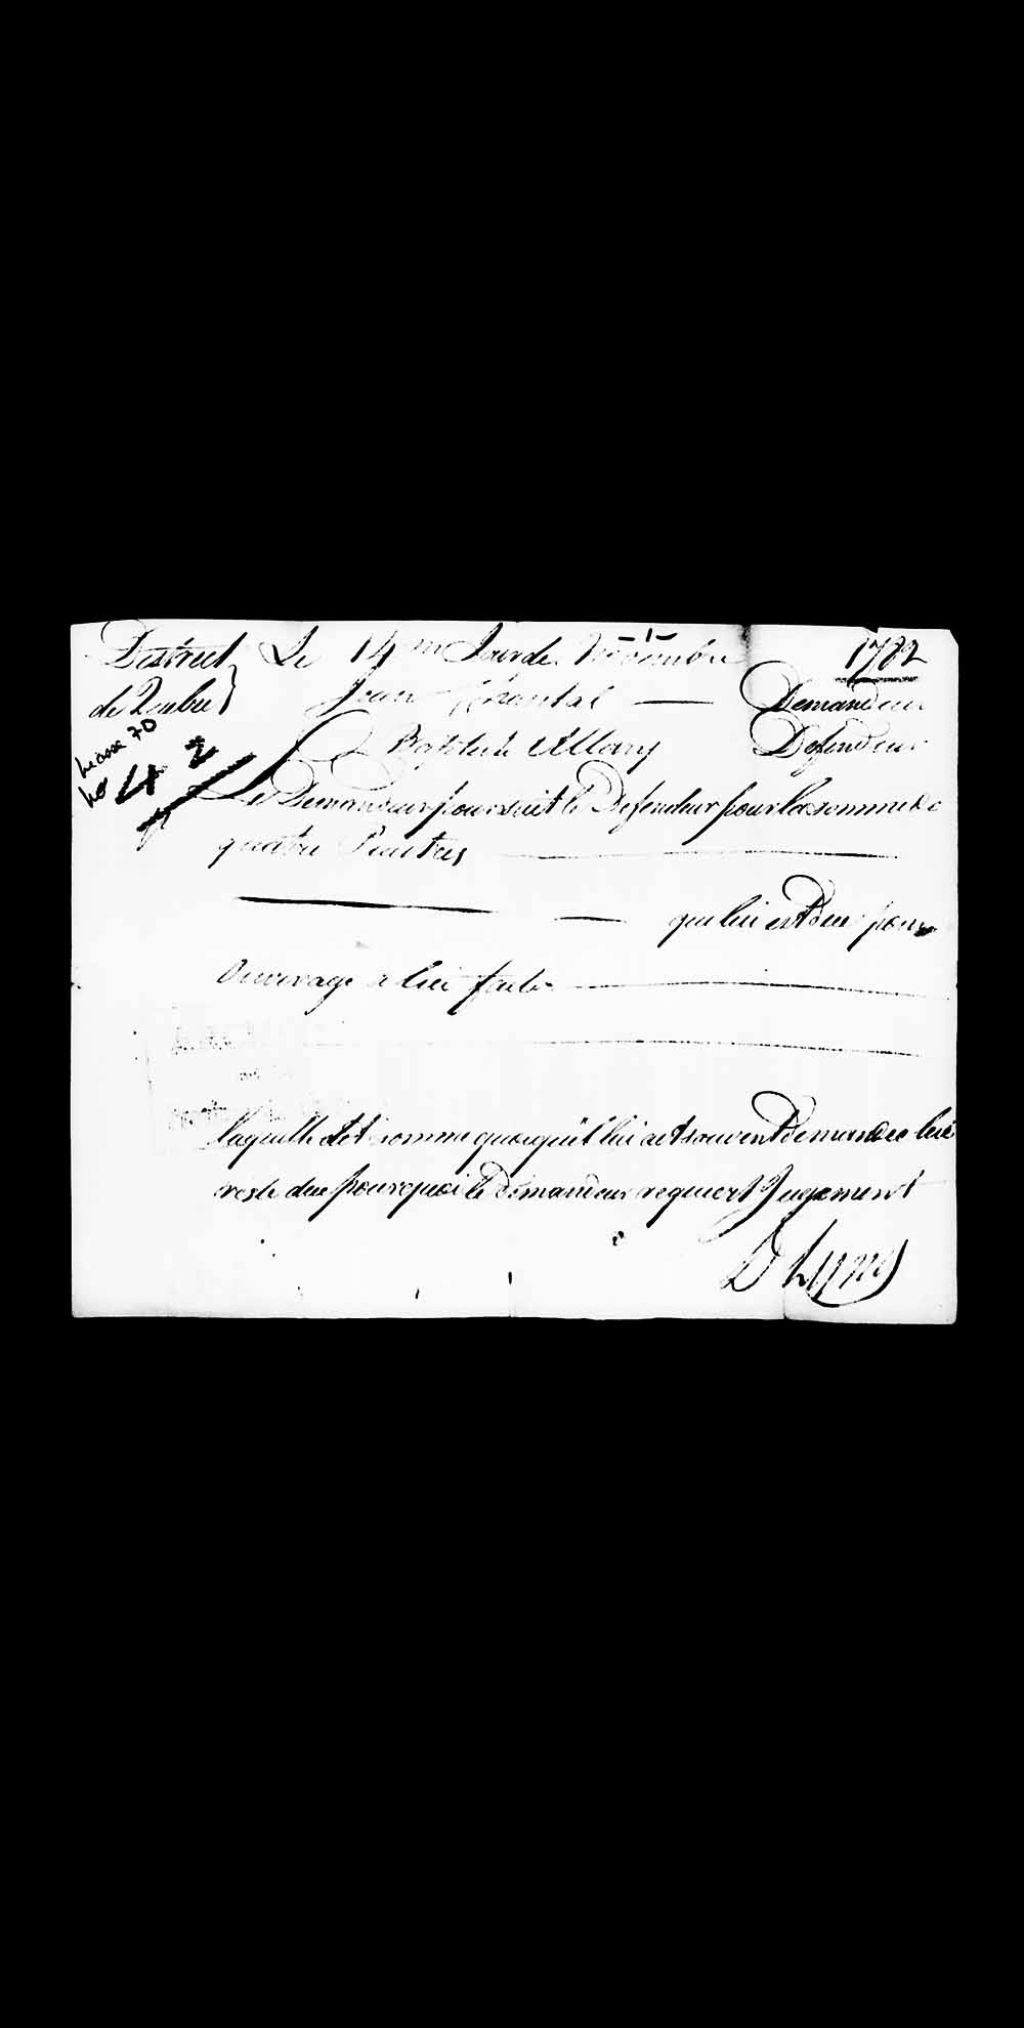 District Le 14 m Jour de Novembre 1782
de Quebec Jean Chantal Demandeur
Liasse 70
& Baptiste Allary Defendeur
No 4 2
Le Demandeur poursuit le Defendeur pour la somme de
quatre Piastres
qui lui est due pour
Ouvrage a lui faite
laquelle det somme quoiquil lui ait souvent Demandee lui
reste due pourquoi le Demandeur requiert Jugement
D Lynd